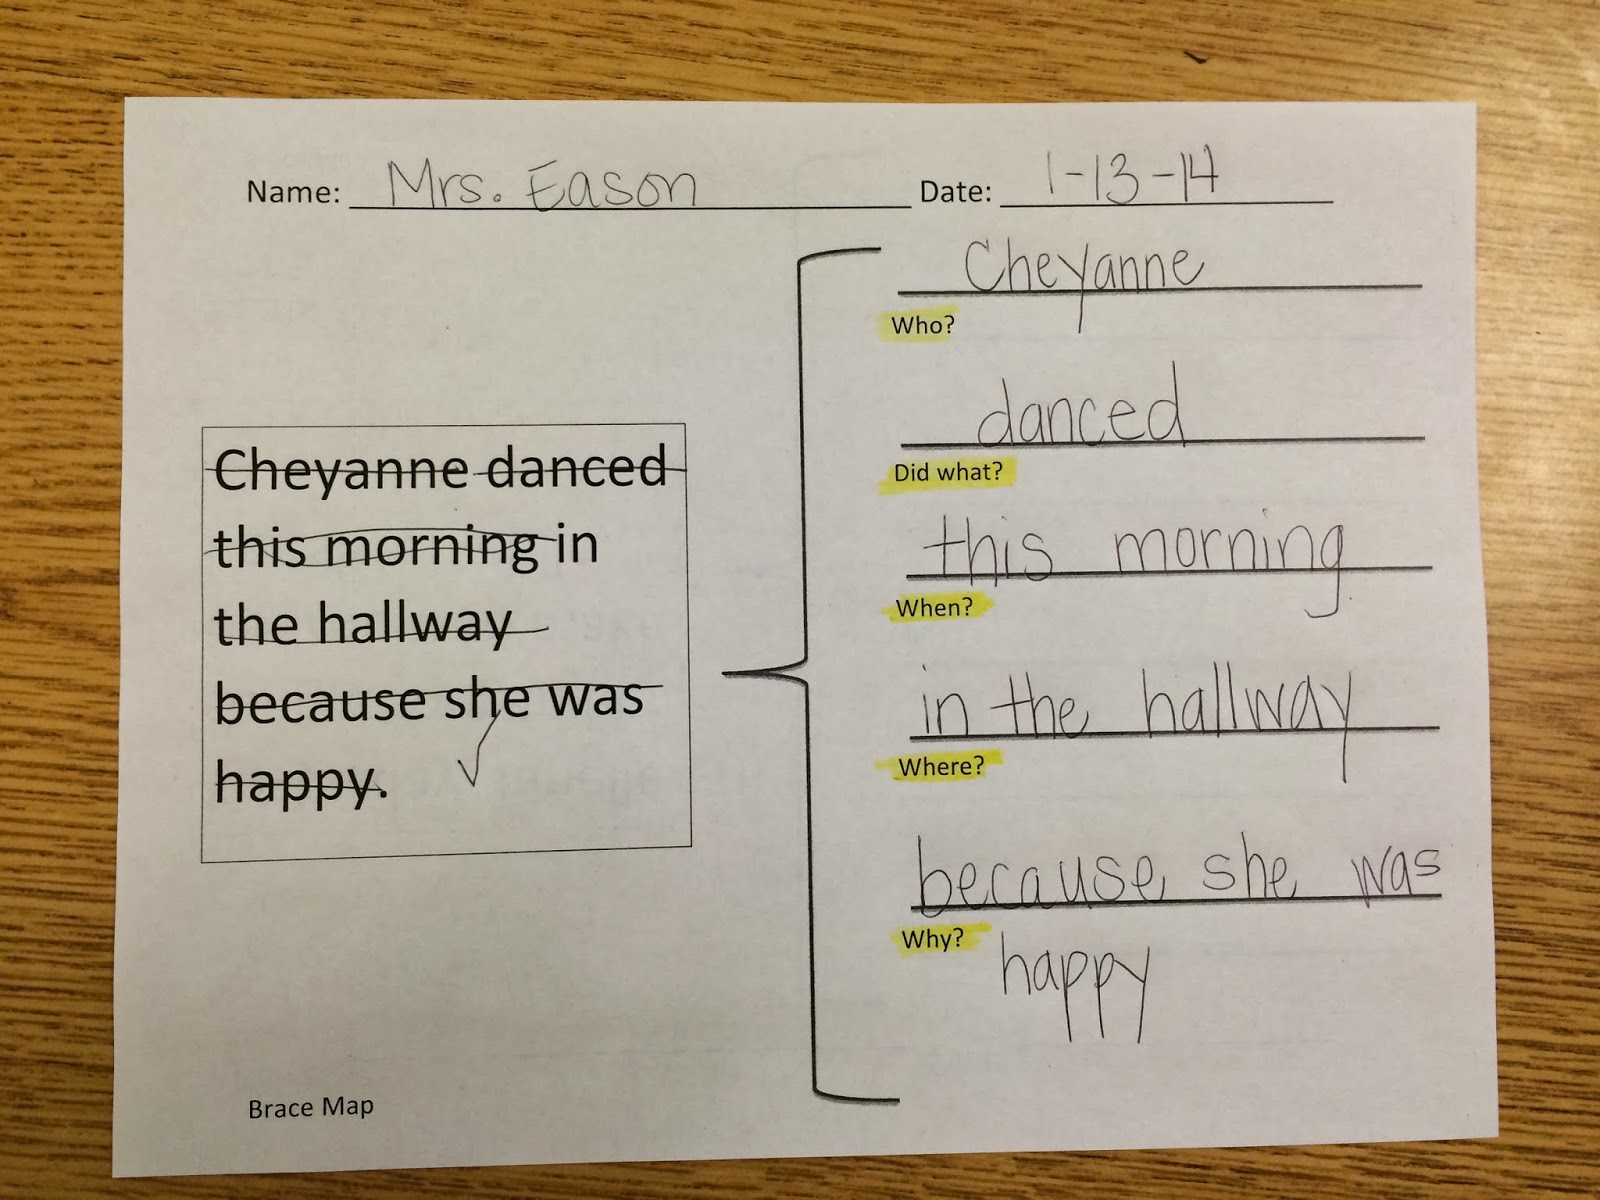 Name: Mrs. Eason Date: 1-13-14
Cheyanne danced
this morning in
the hallway
because she was
happy.
Cheyanne
Who?
danced
Did what?
this morning
When?
in the hallway
Where?
because she was
Why?
happy
Brace Map